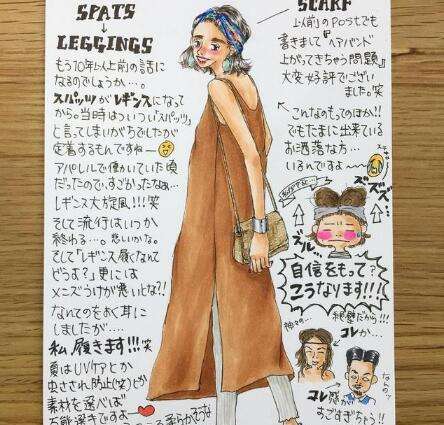 SPATS
↓
LEGGINGS
もう10年以上前の話に
なるのでしょうか…。
スパッツがレギンスになって
から。当時はついつい「スパッツ」
と言ってしまいがちでしたが
定着するもんですね〜
アパレルで働いていた頃
だったので、すごかったなぁ…
レギンス大旋風!!!笑
そして流行はいつか
終わる…。悲しいかな。
そして「レギンス履くなんて
どうよ?」更には
メンズうけが悪いとな?!
なんてのをよく耳に
しましたが…
私履きます!!!笑
夏はUVケアとか
虫さされ防止(笑)とか
素材を選べば
SCARF
以前のPostでも
書きました『ヘアバンド
上がってきちゃう問題』
大変好評でござい
ました。笑
こんなもののほか!!
でもたまに出来ている
お洒落な方…
いるんですよ〜
ズズズ…
自信をもって?
こうなります!!!
コレか…
コレ
すごすぎちょう!!